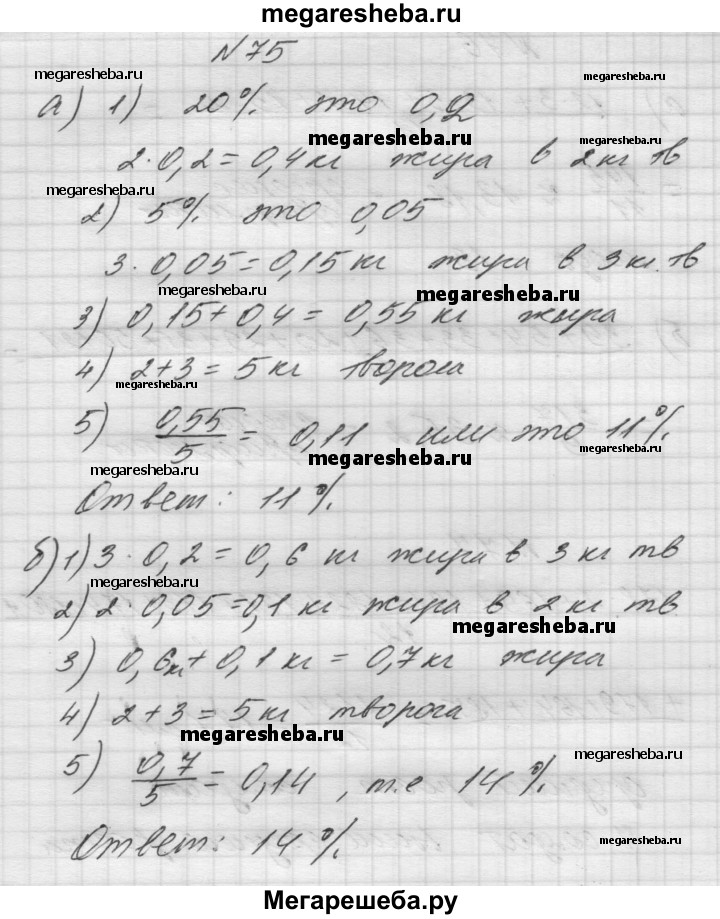 megaresheba.ru
№75
megaresheba.ru megaresheba.ru
а) 1) 20% это 0,2
megaresheba.ru
2·0,2=0,4 кг жира в 2 кг тв
megaresheba.ru
2) 5% это 0,05
3·0,05=0,15 кг жира в 3 кг. тв
megaresheba.ru megaresheba.ru
3) 0,15+0,4=0,55 кг жира
4) 2+3=5 кг творога
megaresheba.ru
5) 0,55/5=0,11 или это 11%.
megaresheba.ru
megaresheba.ru megaresheba.ru
Ответ: 11%.
б) 1) 3·0,2=0,6 кг жира в 3 кг тв
megaresheba.ru
2) 2·0,05=0,1 кг жира в 2 кг тв
megaresheba.ru
3) 0,6кг+0,1 кг=0,7 кг жира
4) 2+3=5 кг творога
megaresheba.ru
megaresheba.ru
5) 0,7/5=0,14, т.е 14%.
Ответ: 14%.
megaresheba.ru
Мегарешеба.ру